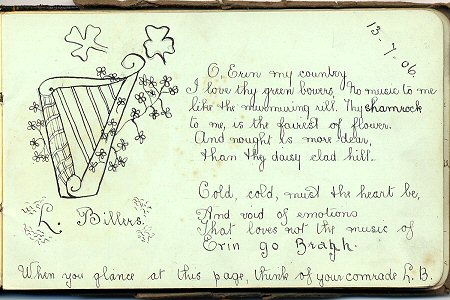 13-7-06.
O, Erin my country
I love thy green bowers, No music to me
like the murmuring rill. Thy shamrock
to me, is the fairest of flower.
And nought is more dear,
than thy daisy clad hill.
Cold, cold, must the heart be,
And void of emotions
That loves not the music of
Erin go Bragh.
L. Billers.
When you glance at this page, think of your comrade L. B.